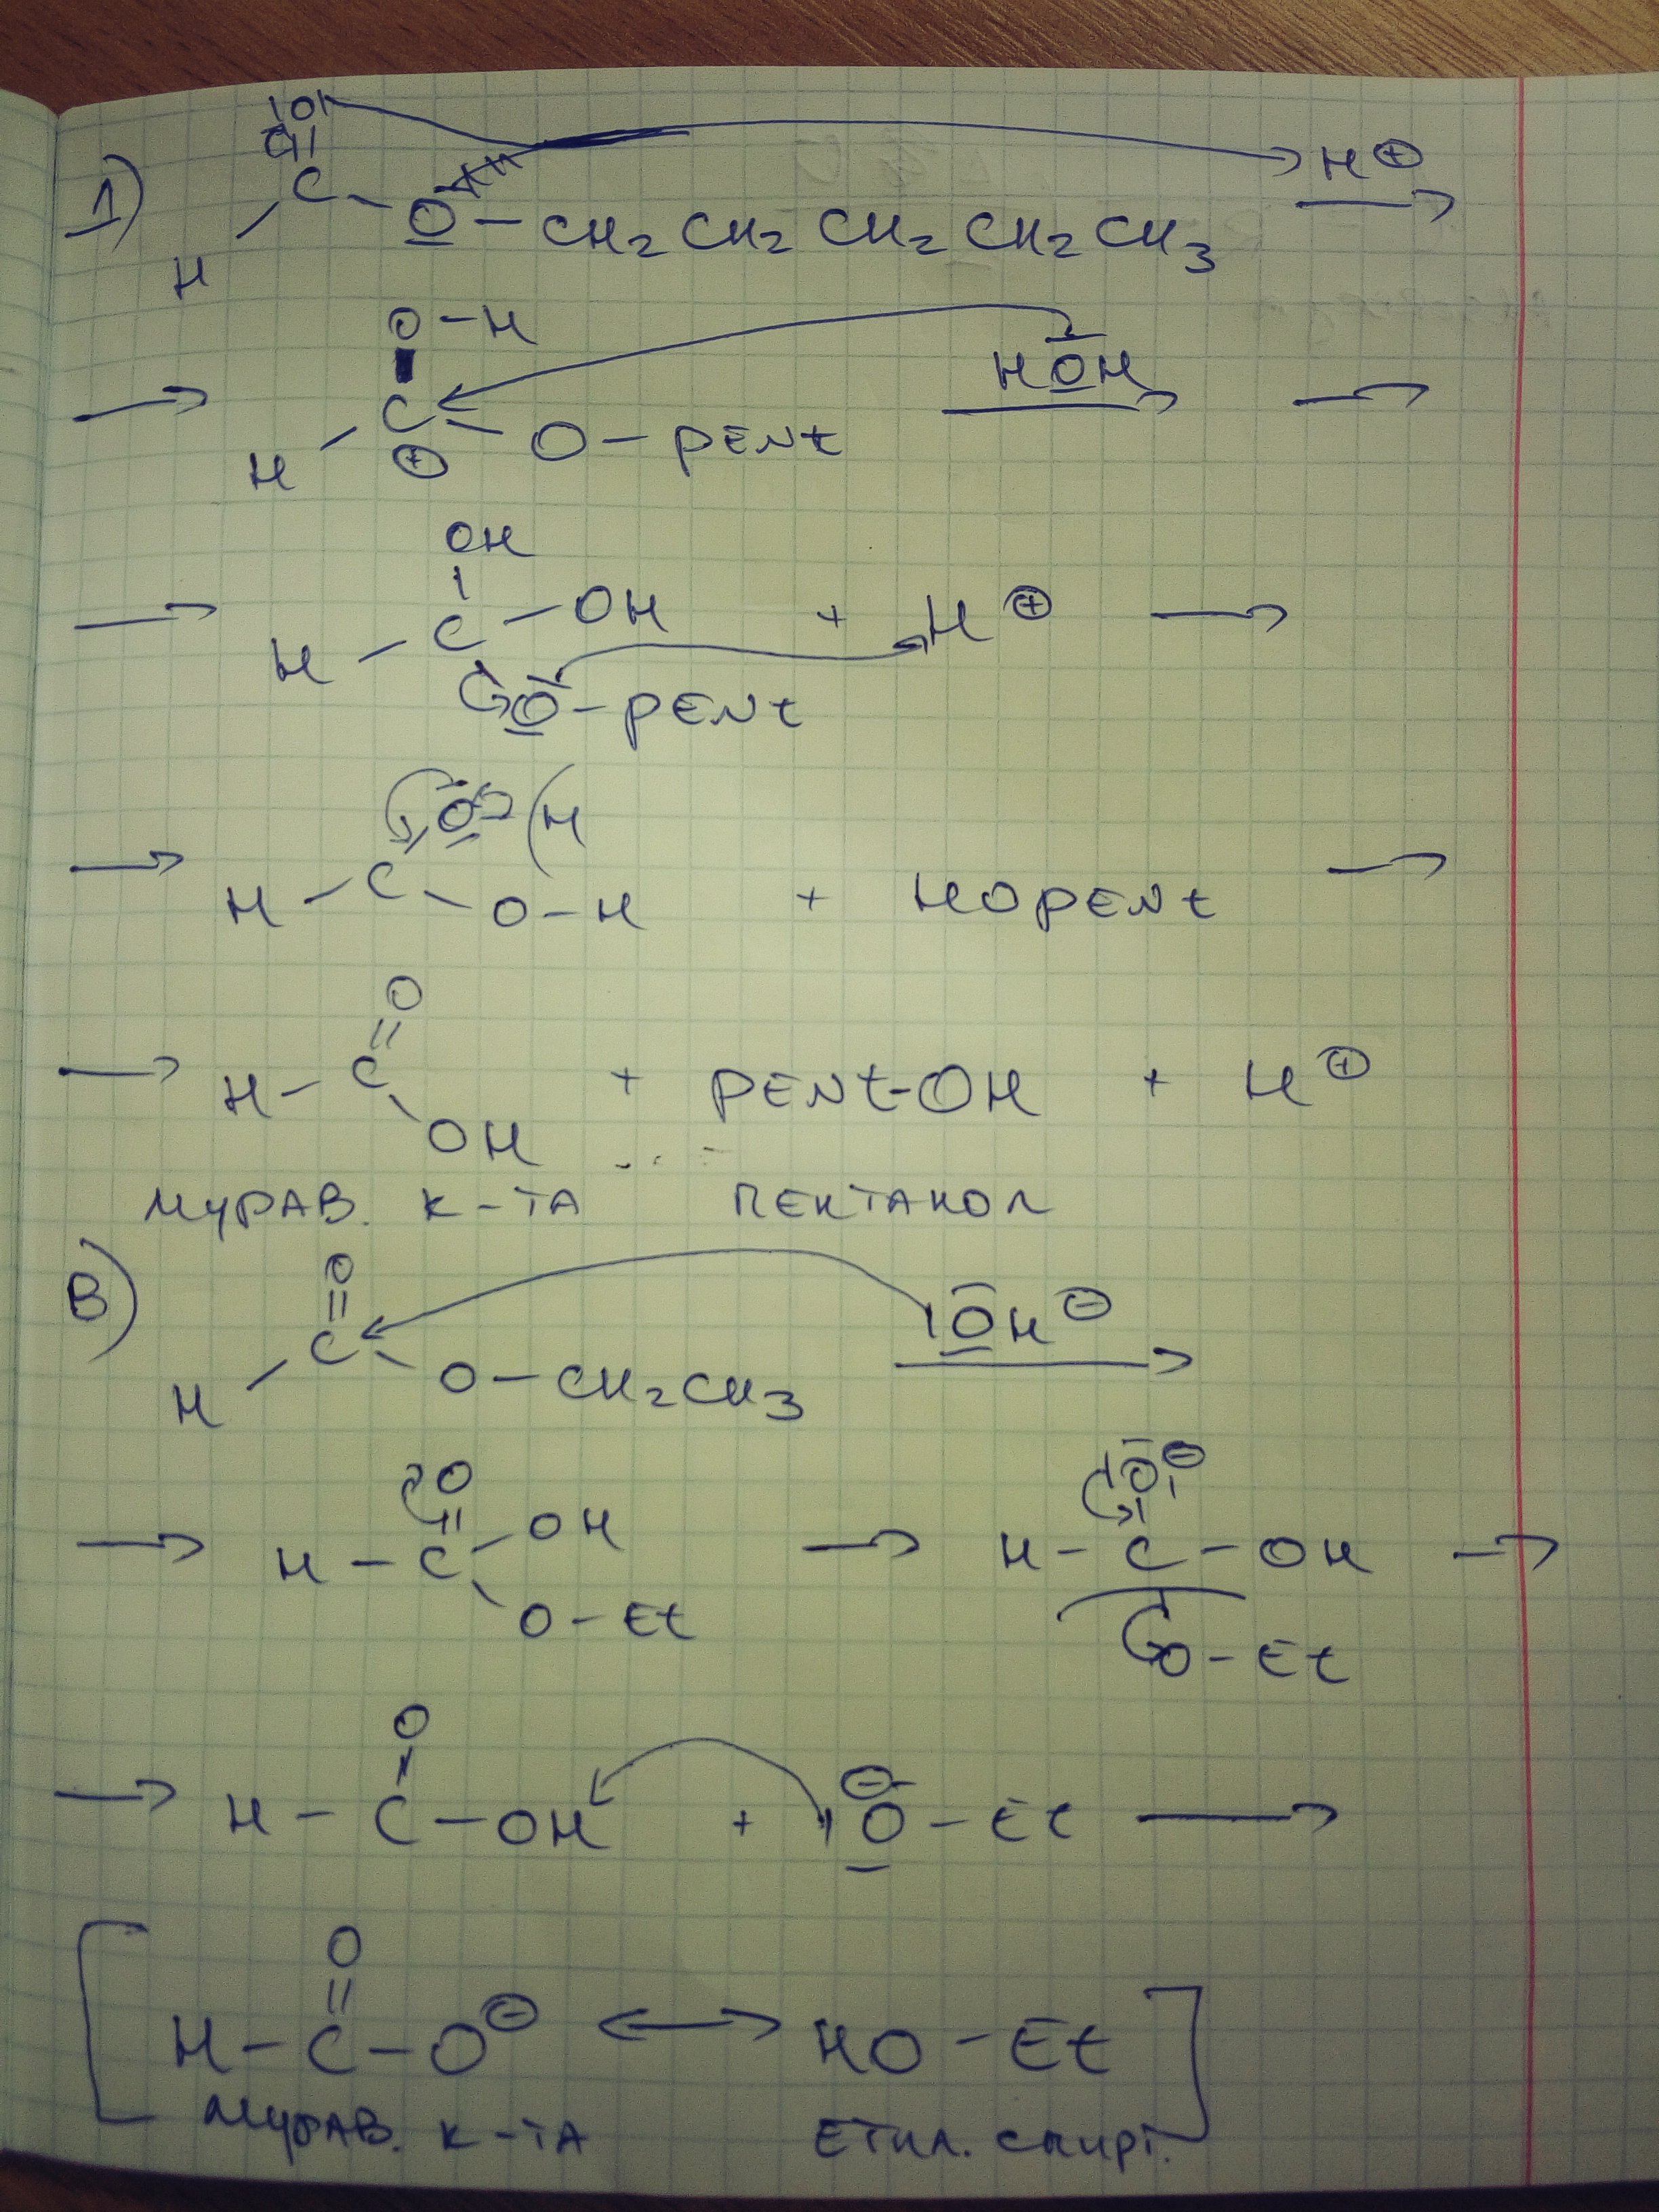 1) H C O O - CH2 CH2 CH2 CH2 CH3 H⊕ →
→ O-H H C ⊕ O - PENt HOH → →
→ OH H - C - OH O - PENt + H⊕ →
→ O (H H - C - O-H + HOPENt →
→ O H - C OH + PENt-OH + H⊕
МУРАВ. К-ТА ПЕНТАНОЛ
В) O H C O - CH2CH3 OH⊖ →
→ O H - C OH O - Et → O⊖ H - C - OH O - Et →
→ O H - C - OH + ⊖O - Et →
[ O H - C - O⊖ ↔ HO - Et ]
МУРАВ. К-ТА ЕТИЛ. СПИРТ.